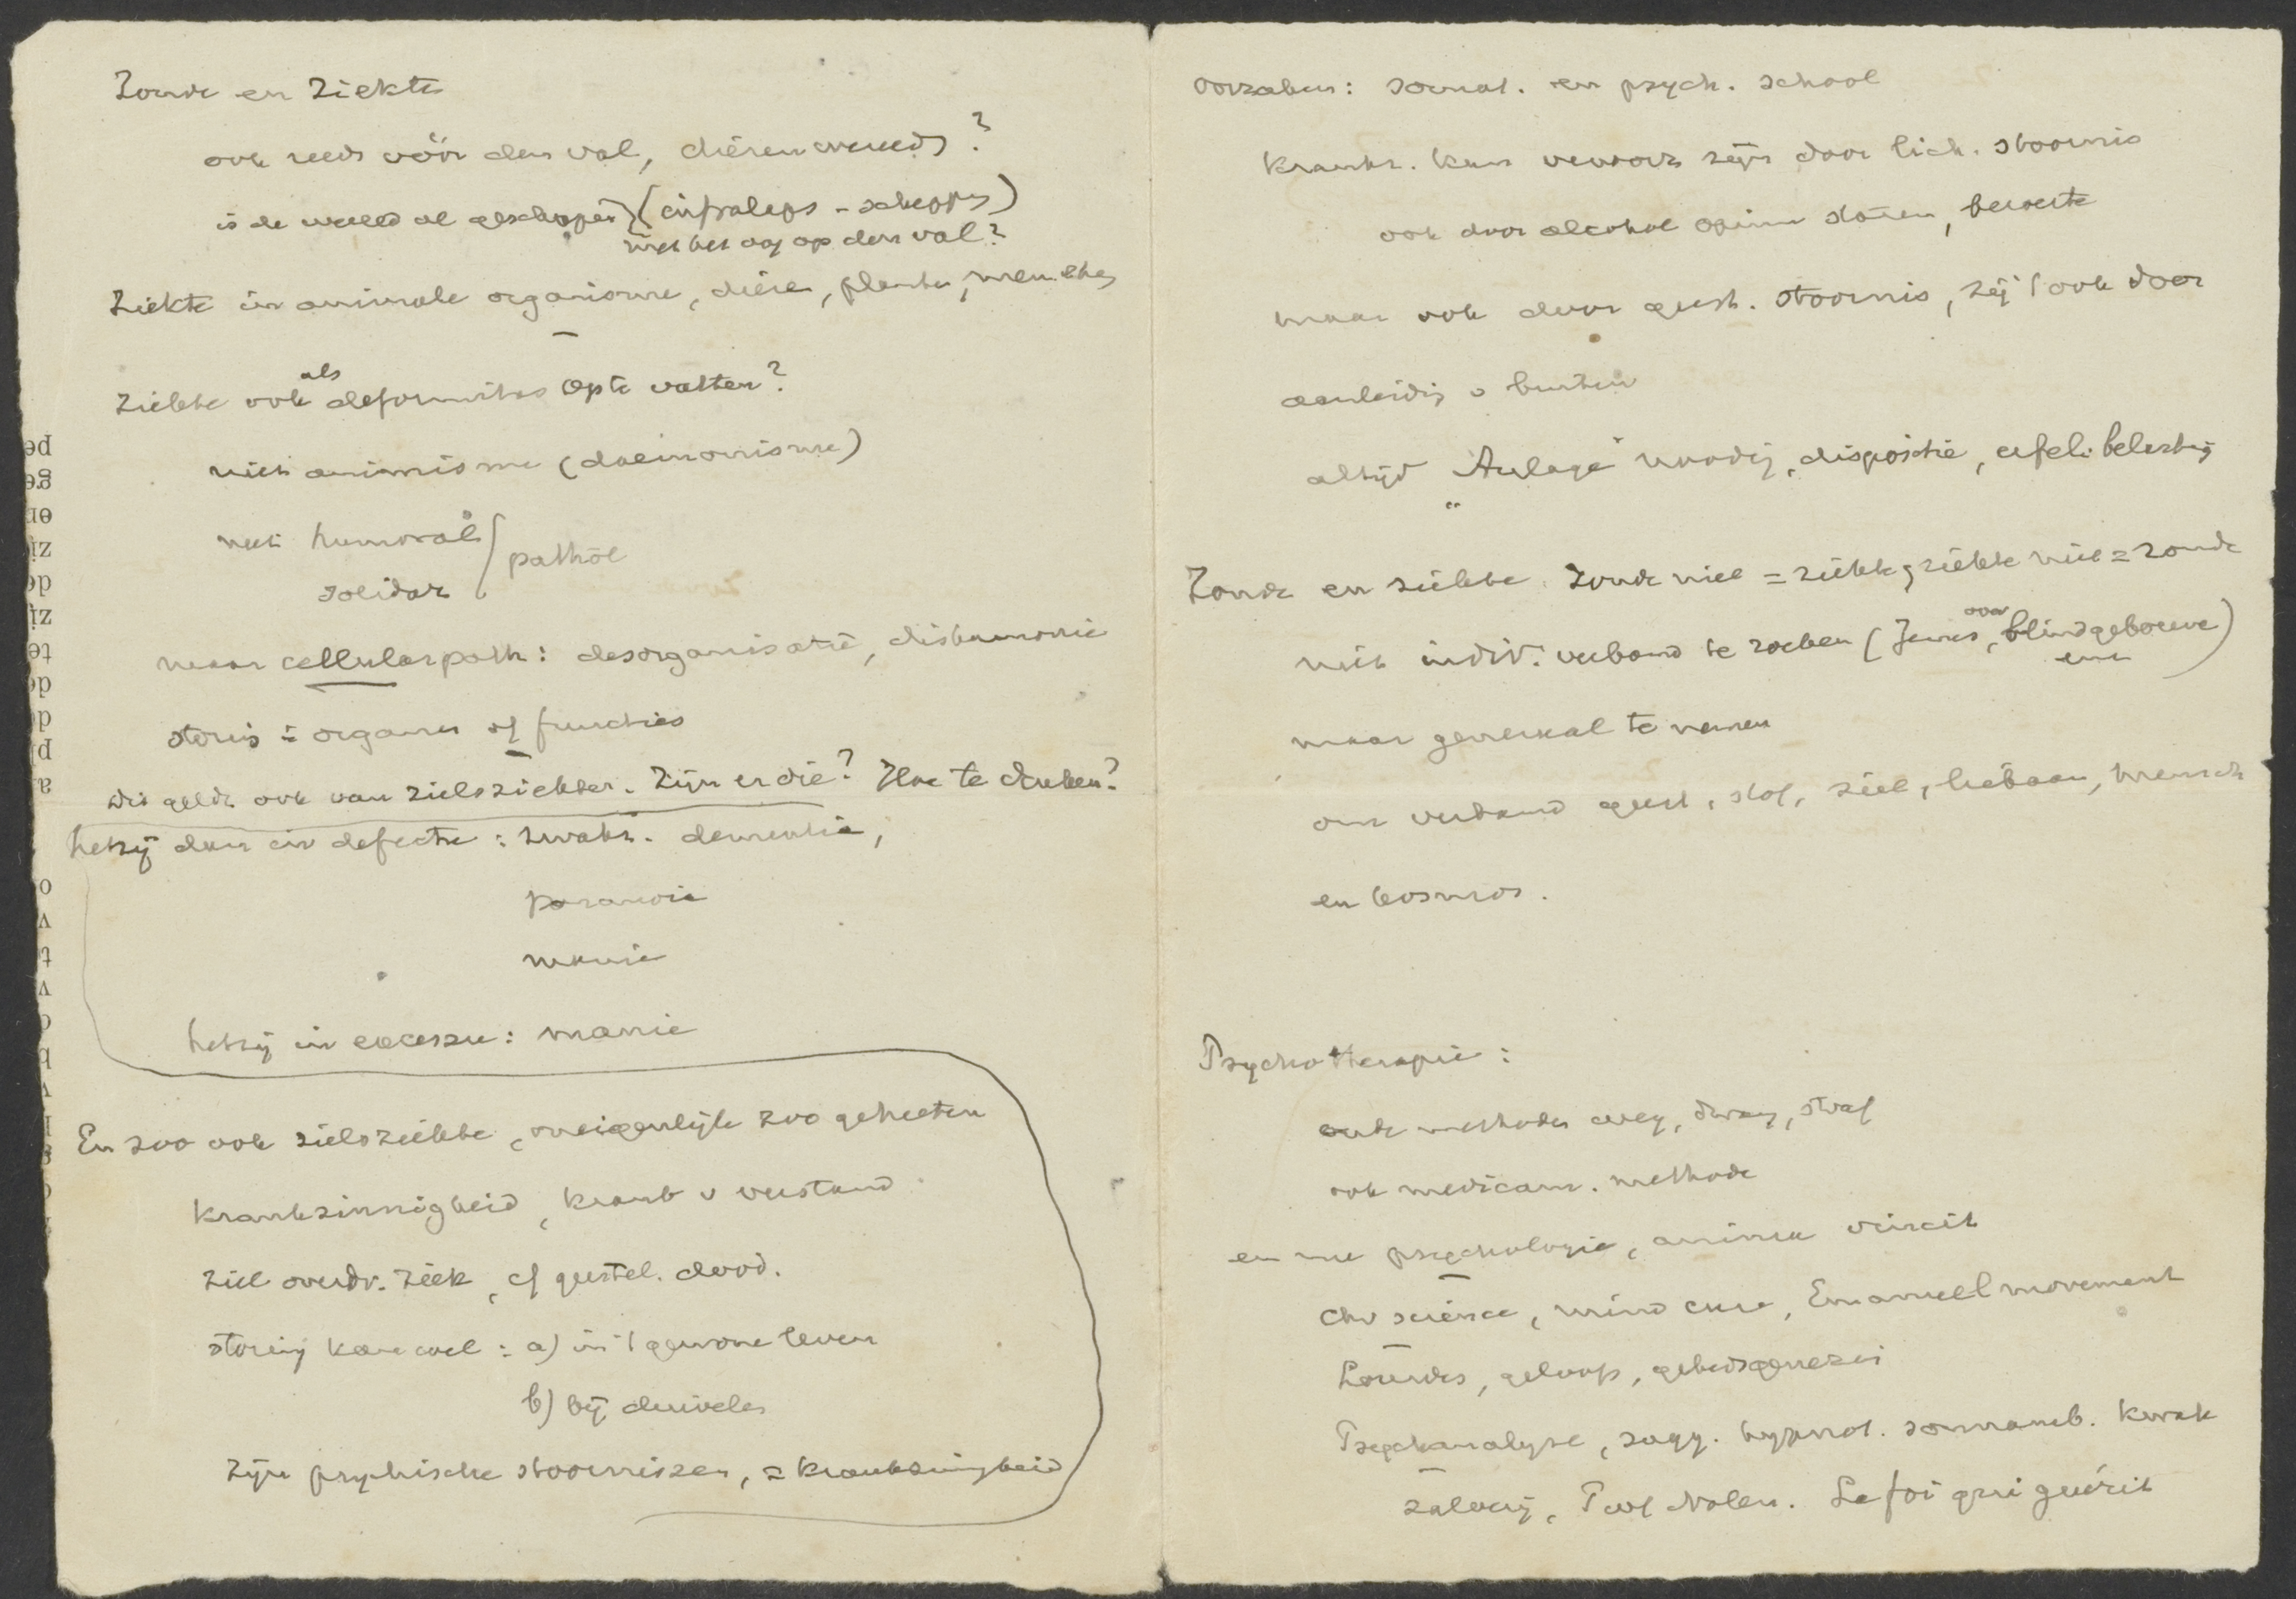 Zonde en Ziekte
ook reeds vóór den val, dierenwereld?
is de wereld al geschapen (infralaps - schepping)
met het oog op den val?
Ziekte in animale organisme, dieren, planten, menschen
Ziekte ook als deformitas op te vatten?
niet animisme (daemonisme)
niet humoraal
solidar pathol
maar cellularpath: desorganisatie, disharmonie
storing in organen of functies
dit geldt ook van zielsziekten. Zijn er die? Hoe te denken?
hetzij dan in defectu: zwakz. dementia,
paranoia
manie
hetzij in excessu: manie
En zoo ook zielsziekte, oneigenlijk zoo geheeten
krankzinnigheid, krank v verstand
ziel overdr. ziek, cf geestel. dood.
storing kan wel: a) in 't gewone leven
b) bij duivelen
Zijn psychische stoornissen, = krankzinnigheid
oorzaken: somat. en psych. school
krankz. kan veroorz zijn door lich. stoornis
ook door alcohol opium
maar ook door geest. stoornis, zij 't ook door
aanleiding v buiten
altijd "Anlage" noodig, dispositie, erfel. belasting
Zonde en ziekte. Zonde niet = ziekte, ziekte niet = zonde
niet indiv. verband te zoeken (Jezus over blindgeborene)
maar generaal te nemen
om verband geest, stof, ziel, lichaam, mensch
en kosmos.
Psychotherapie:
oude methodes weg, dwang, straf
ook medicam. methode
en nu psychologie, anima vincit
Chr science, mind cure, Emanuel movement
Lourdes, geloofs, gebedsgenezing
Psychanalyse, sugg. hypnot. somnamb. kwak
zalverij, Prof Nolen. La foi qui guérit